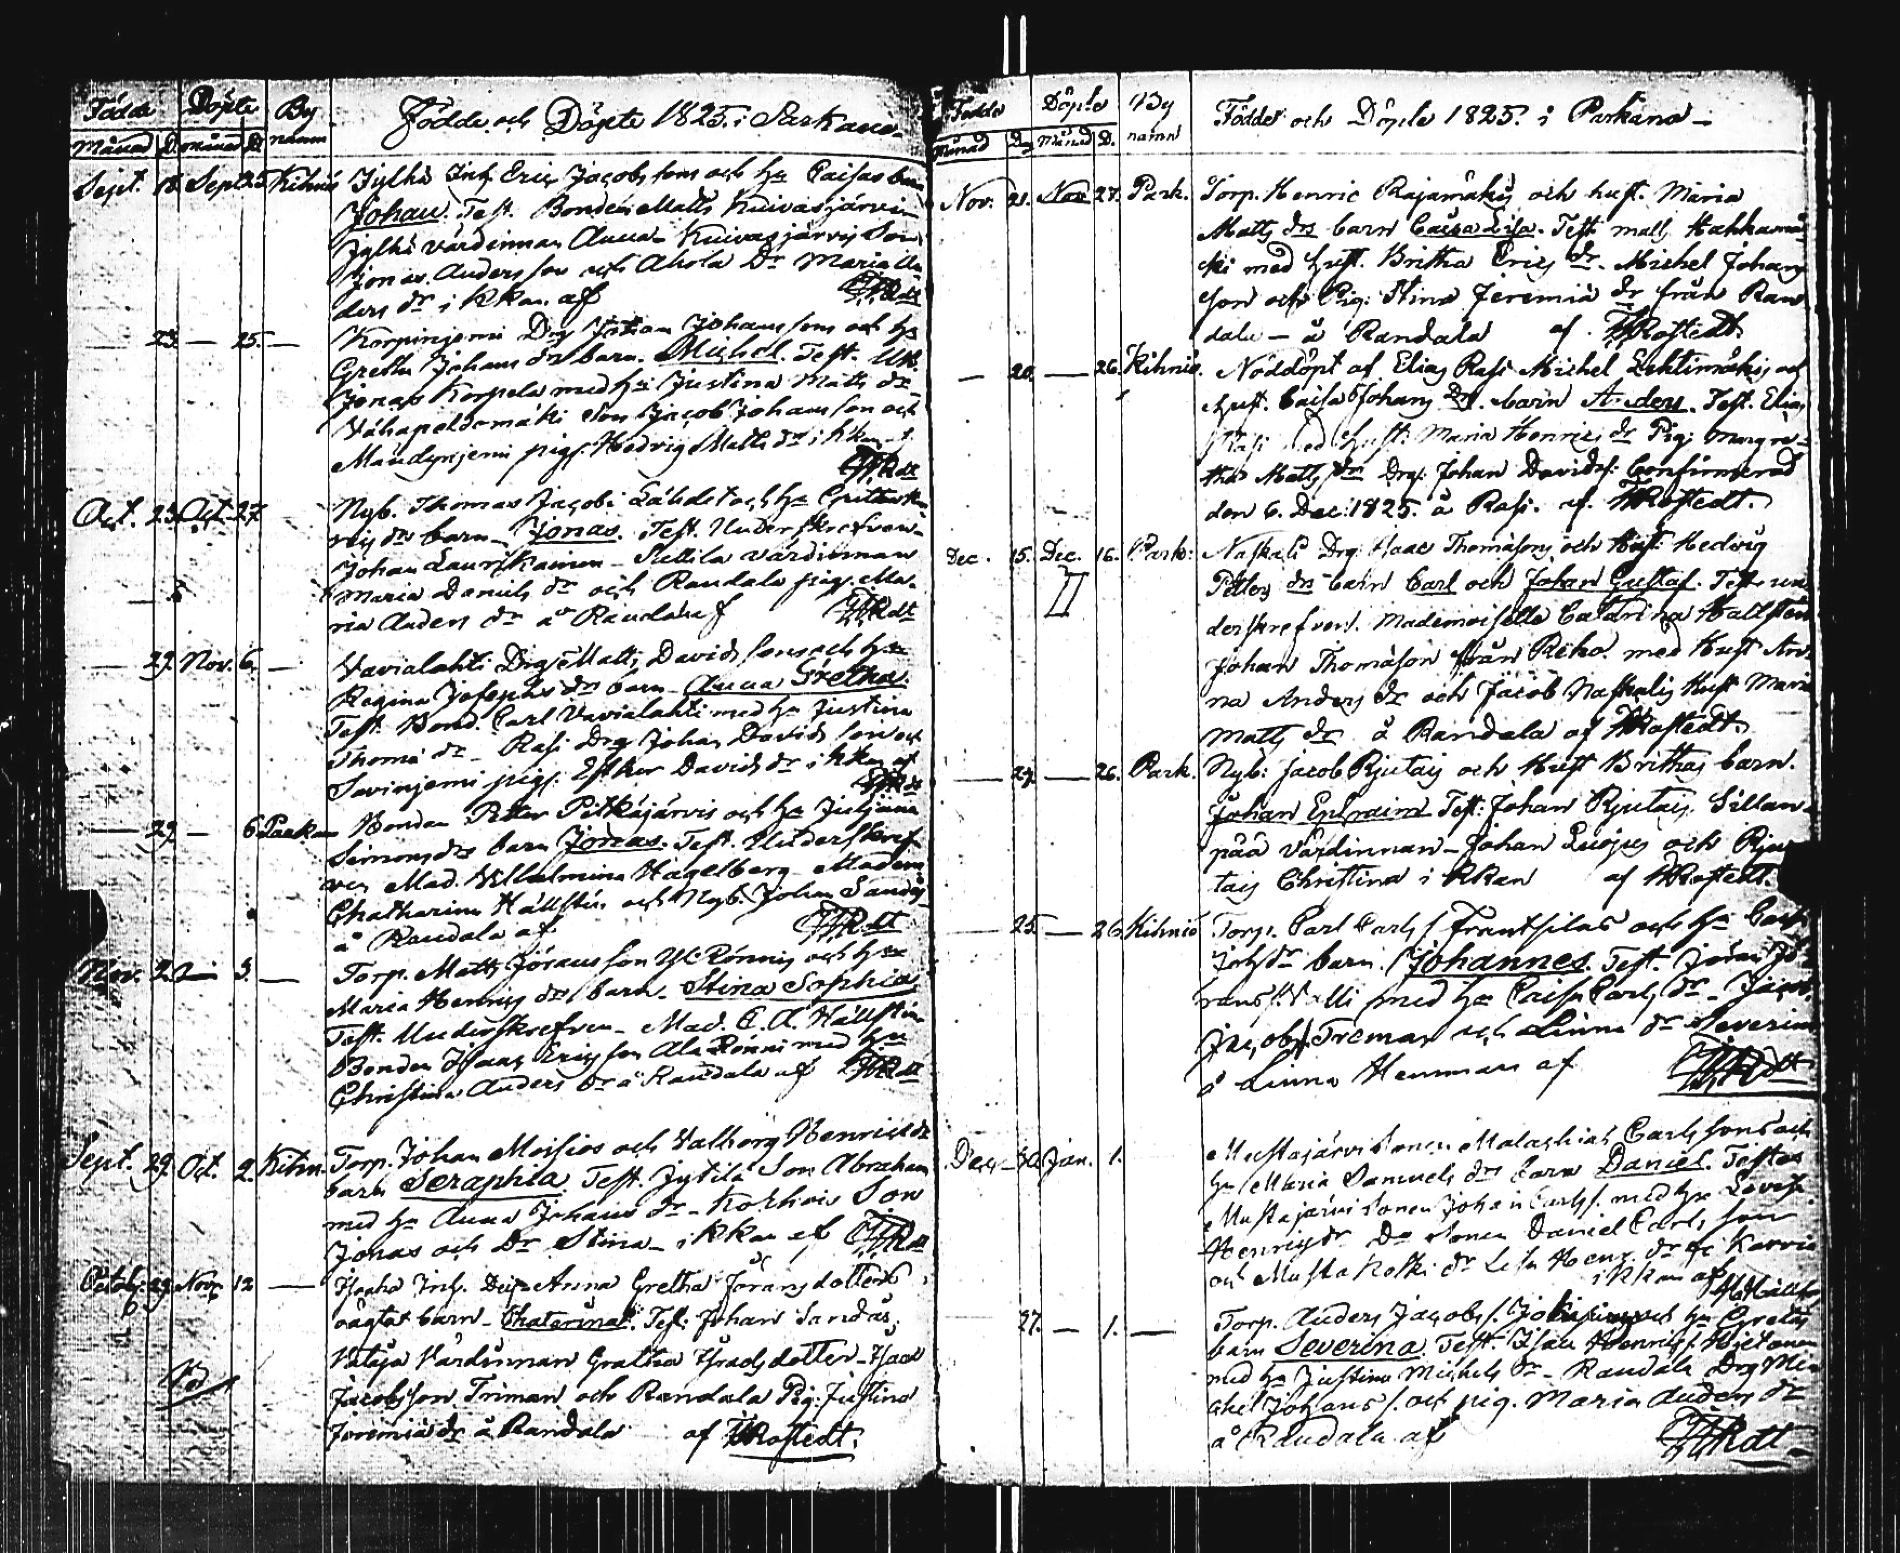 Födde Döpte By
Månad D. månad D. namn
Födde och Döpte 1825. i Parkano
Sept. 18. Sept. 25. Kihniö Jylhä Inh. Eric Jacobs sons och hu Caisas barn
Johan. Test. Bonden Matts Kuivasjärvi
Jylhä värdinnan Anna Kuivasjärvis Son
Jonas Anders son och Ahola Dr Maria An
ders dr i kkan af FWRdt
— 23. — 25. — Korpinjemi Drg Johan Johans sons och hu
Gretha Johans drs barn Michel. Test. Utb.
Jonas Korpela med hu Justina Matts dr
Vähapeldomäki Son Jacob Johans son och
Mändynjemi pig. Hedvig Matts dr i kkan af
FWRdt
Oct. 23. Oct. 27. Nyb. Thomas Jacobs och hu
drs barn Jonas. Test. Underskrefven
Johan Laurikainen värdinnan
Maria Daniels dr och Randala pig. Ma-
ria Anders dr å Randala af FWRdt
— 29. Nov. 6. — Vavialahti Drg Matts Davids sons och hu
Regina Josephs drs barn Anna Gretha.
Test. Bond. Carl Vavialahti med hu Justina
Thomæ dr Rasi Drg Johan Davids son och
Savinjemi pig. Esther Davids dr i kkan af
FWRdt
— 29. — 6. Parkano Bonden Petter Pitkäjärvis och hu Juliana
Simons drs barn Jonas. Test. Underskref
ven Mad. Vilhelmina Hagelberg Madem
Chatharina Hällstén och Nyb. Johan Sandås
å Randala af FWRdt
Nov. 2. — 3. — Torp. Matts Jörans son Yli Rönnis och hu
Maria Henrics drs barn Stina Sophia
Test. Underskrefven Mad. C. A. Hällstén
Bonden Isaac Erics son Ala Rönni med hu
Christina Anders dr å Randala af FWRdt
Sept. 29. Oct. 2. Kihn. Torp. Johan Moisios och Valborg Henrics dr
barn Seraphia. Test. Jytilä Son Abraham
med hu Anna Johans dr Korhois Son
Jonas och Dr Stina i kkan af FWRdt
Octob. 29. Nov. 12 — Inh. Anna Gretha Jörans dotters
oägta barn Chatarina. Test. Johan Sandås,
Värdinnan Gretha Isacs dotter Isaac
Jacobsson Triman och Randala Pig. Justina
Jeremiæ dr å Randala af FWRostedt.
Födde Döpte By
Månad Dag Månad D. namn
Födde och Döpte 1825. i Parkano
Nov. 21. Nov. 27. Park. Torp. Henric Rajamäkis och hust. Maria
Matts drs barn Caisa Lisa. Test. Matts Hahkamä
ki med hust. Britha Erics dr. Michel Johans
son och Pig. Stina Jeremiæ dr från Ran
dala — å Randala af FWRostedt.
— 20. — 26. Kihniö. Nöddöpt af Elias Rasi Michel Lehtimäkis och
hust. Caisa Johans Drs. barn Anders. Test. Elias
Rasi med hust. Maria Henrics dr Pig: Margre-
tha Matts dr Drg: Johan Davids s. Confirmerad
den 6. Dec. 1825. å Rasi. af. FWRostedt.
Dec. 15. Dec. 16. Park: Naskali Drg: Isaac Thomæsons och Hust. Hedvig
Petters drs barn Carl och Johan Gustaf. Test. un
derskrefven. Mademoiselle Catarina Hallstén
Johan Thomæson från Riho. med Hust. An-
na Anders dr och Jacob Naskalis Hust Maria
Matts dr å Randala af FWRostedt.
II
— 24. — 26. Park. Nyb: Jacob Rjutais och Hust Brithas barn.
Johan Ephraim Test: Johan Rjutais. Sillan-
pää värdinnan — Johan och Rju
tais Christina i kkan af FWRostedt.
— 25. — 26. Kihniö Torp. Carl Carls s. Frantsilas och hu Caisa
Johs dr barn. Johannes. Test. Jöran Jö-
rans s. Valli med hu Caisa Carls dr. Jacob
Jacobs s. Treman och Linna dr Severina
å Linna Hemman af FWRdt
Dec. 30. Jan. 1. Mustajärvi Sonen Malachias Carls sons och
hu Maria Samuels drs barn Daniel. Testes
Mustajärvi Sonen Johan Carls s. med hu Lovisa
Henrics dr Do Sonen Daniel Carls son
och Mustakoski dr Lisa Henr. dr
i kkan af
— 27. — 1. — Torp. Anders Jacobs s. och hu Gretas
barn Severina. Test. Isaac Henrics s.
med hu Justina Michels dr Randala Drg Mi
chel Johans s. och pig. Maria Anders dr
å Randala af FWRdt